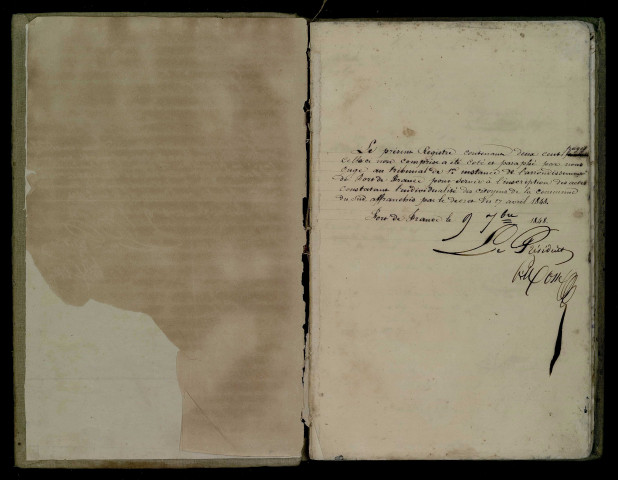 Le présent Registre contenant deux cent
celle ci non comprise a été coté et paraphé par nous
Juge au tribunal de 1re instance de l'arrondissement
de Fort de France pour servir à l'inscription des actes
constatant l'individualité des citoyens de la commune
du Sud affranchis par le décret du 27 avril 1848.
Fort de France le 9 7bre 1848.
Le Président